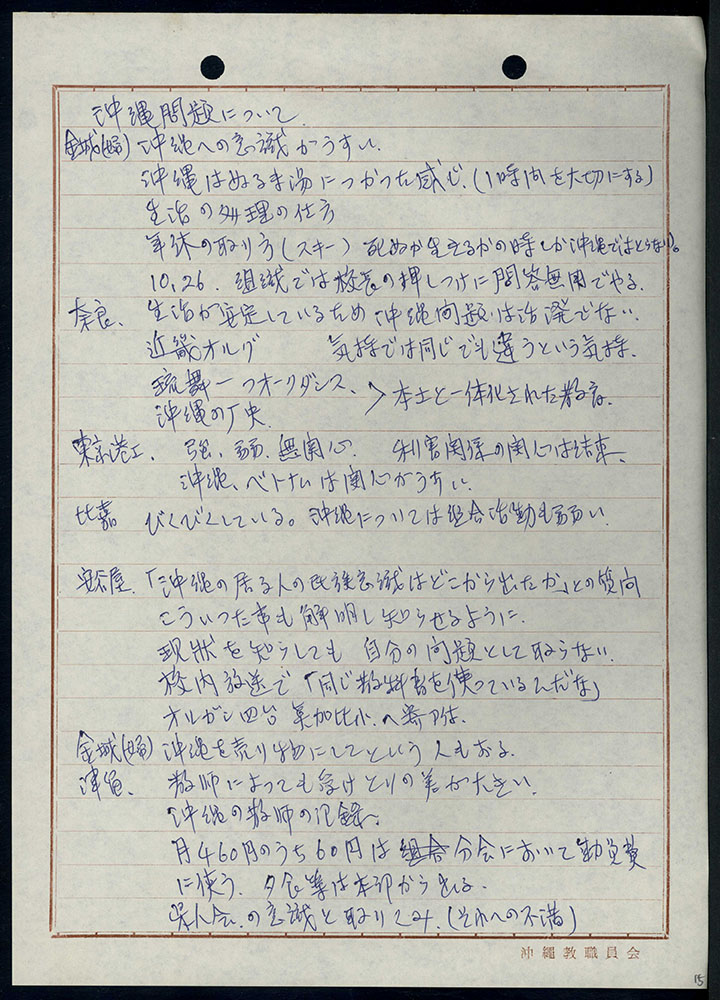 沖縄問題について
金城(婦) 沖縄への意識がうすい
沖縄はぬるま湯につかった感じ.(1時間を大切にする)
生活の処理の仕方
年休の取り方(スキー) 死ぬか生きるかの時しか沖縄ではとらない。
10,26. 組織では校長の押しつけに問答無用でやる.
奈良、 生活が安定しているため沖縄問題は活溌でない.
近畿オルグ 気持では同じでも違うという気持.
琉舞一つオークダンス、
沖縄の
> 本土と一体化された教育.
東京港工、 強、弱、無関心 利害関係の関心は結束、
沖縄、ベトナムは関心がうすい.
比嘉 びくびくしている。沖縄については組合活動も弱い.
安谷屋.「沖縄の居る人の民族意識はどこから出たか」との質問
こういった事も解明し知らせるように.
現状を知らしても 自分の問題として取らない.
校内放送で「同じ教科書を使っているんだな」
オルガン四台
金城(婦) 沖縄を売り物にしてという人もおる.
教師によっても受けとりの差が大きい.
沖縄の教師の記録へ
月460円のうち60円は組合分会において動員費
に使う. 夕食等は本部からとる.
県人会.の意識と取りくみ.(それへの不満)
沖縄教職員会
15